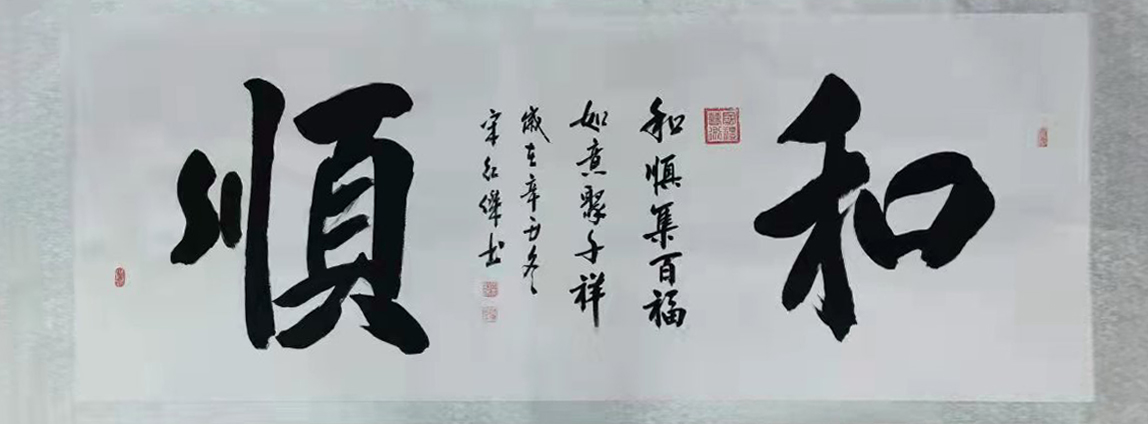 和順
和順集百福
如意聚千祥
歲在辛丑冬
宋红傑书